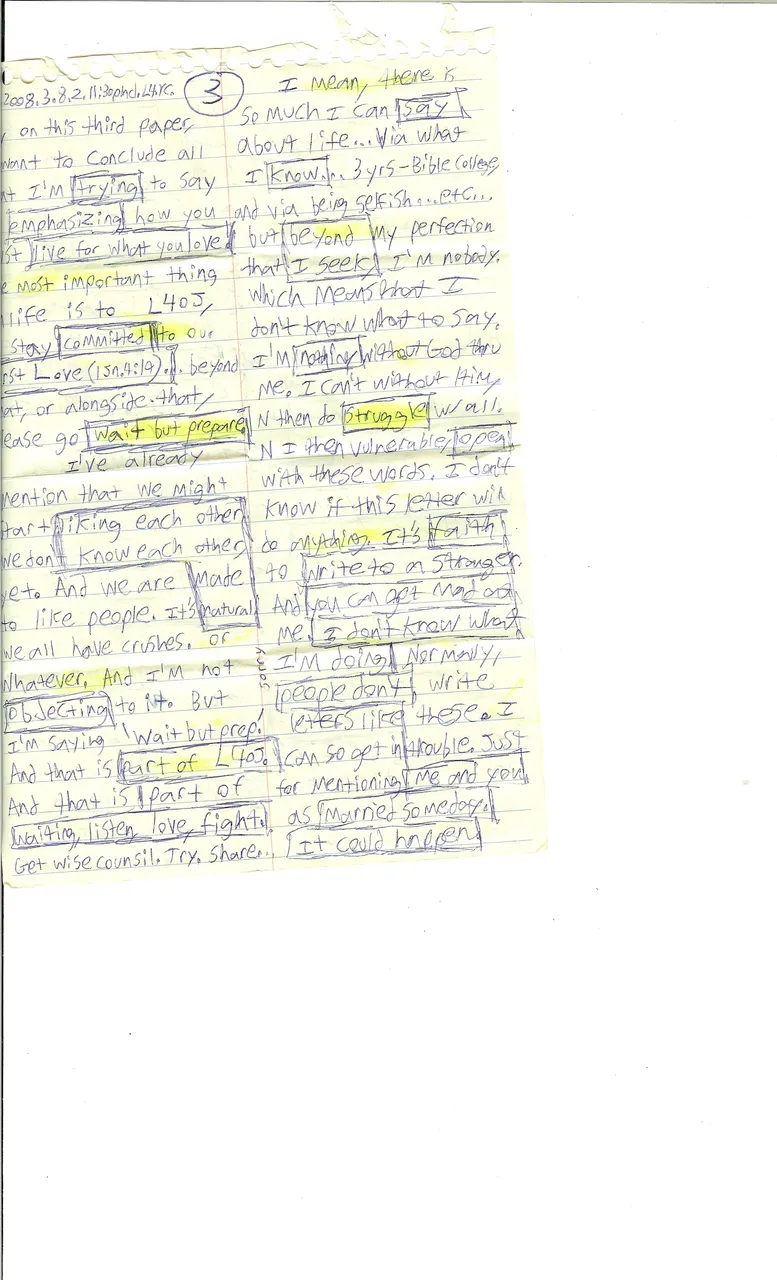 2008.3.8.2.11:30phd.L4YC.
3
, on this third paper,
want to conclude all
at I'm trying to say
emphasizing how you
st live for what you love!
e most important thing
life is to L4OJ,
stay committed to our
rst Love (1Jn.4:19). beyond
at, or alongside that,
ease go wait but prepare
I've already
mention that we might
tart liking each other
we don't know each other
yet. And we are made
to like people. It's natural
we all have crushes. or
Whatever. And I'm not
objecting to it. But
I'm saying 'Wait but prep!'
And that is part of L4OJ.
And that is part of
waiting, listen, love, fight.
Get wise counsil. Try. Share...
I mean, there is
so much I can say
about life... Via what
I know... 3 yrs-Bible College,
and via being selfish...etc...
but beyond my perfection
that I seek, I'm nobody.
which means that I
don't know what to say.
I'm nothing without God thru
me. I can't without Him,
N then do struggle w/ all.
N I then vulnerable, open
with these words. I don't
know if this letter will
do anything. It's faith
to write to a stranger.
And you can get mad at
me. I don't know what
I'm doing. Normally,
people don't write
letters like these. I
can so get in trouble. Just
for mentioning me and you
as married someday.
It could happen